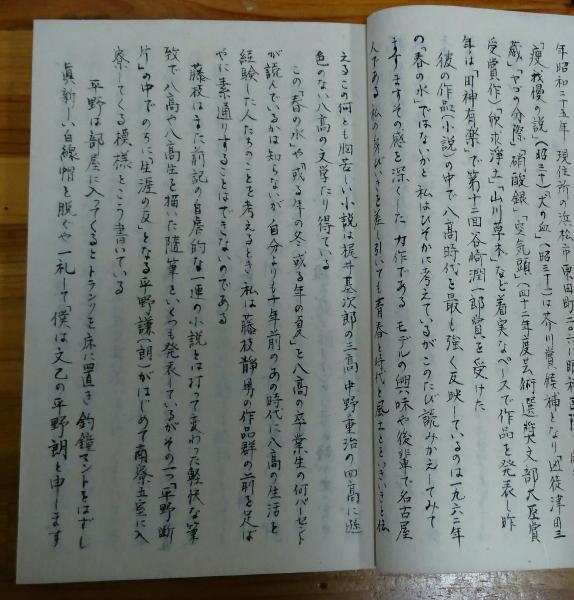 年昭和二十五年 現住所の浜松市東田町
「痩我慢の説」(昭三十)「犬の血」(昭三十一)は芥川賞候補となり 凶徒津田三
蔵」「ヤゴの分際」「硝酸銀」「空気頭」(四十二年度芸術選奨文部大臣賞
受賞作)「欣求浄土」「山川草木」など着実なペースで作品を発表し昨
年は「田紳有楽」で第十二回谷崎潤一郎賞を受けた
彼の作品(小説)の中で八高時代を最も強く反映しているのは一九六二年
の「春の水」ではないかと私はひそかに考えているがこのたび読みかえしてみて
ますますその感を深くした 力作である モデルの興味や後輩で名古屋
人である私の身びいきを差し引いても青春と時代と風土とをいきいきと伝
えるこの何とも胸苦しい小説は梶井基次郎の三高 中野重治の四高に遜
色のない八高の文学たり得ている
この「春の水」や「或る年の冬 或る年の夏」を八高の卒業生の何パーセント
が読んでいるかは知らないが 自分よりも十年前のあの時代に八高の生活を
経験した人たちのことを考えるとき 私は藤枝静男の作品群の前を足ば
やに素通りすることはできないのである
藤枝はまた前記の自虐的な一連の小説とは打って変わった軽快な筆
致で八高や八高生を描いた随筆をいくつも発表しているがその一つ「平野断
片」の中でのちに「生涯の友」となる平野謙(朗)がはじめて南寮五室に入
寮してくる模様をこう書いている
平野は部屋に入ってくるとトランクを床に置き 釣鐘マントをはずし
真新しい白線帽を脱ぐや一礼して「僕は文乙の平野朗と申します